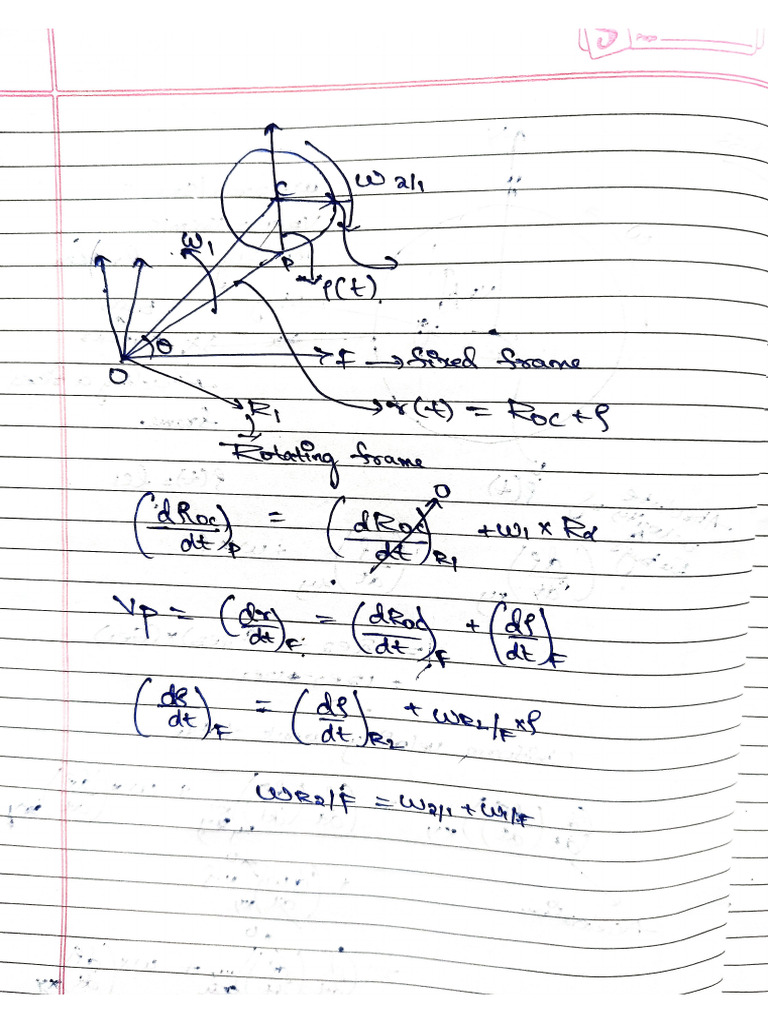 ω 2/1
C
ω1
P
ρ(t)
θ
F → fixed frame
O
R1
r(t) = ROC + ρ
Rotating frame
(dROC/dt)F = (dROC/dt)R1 0 + ω1 × ROC
VP = (dr/dt)F = (dROC/dt)F + (dρ/dt)F
(dρ/dt)F = (dρ/dt)R2 + ωR2/F × ρ
ωR2/F = ω2/1 + ω1/F